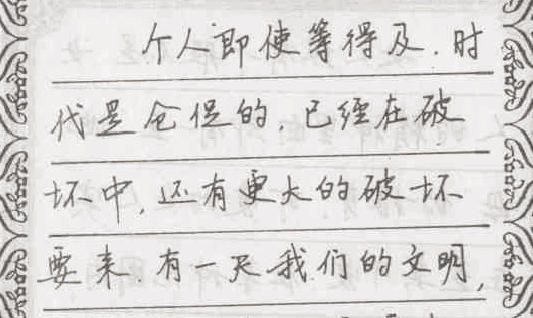 个人即使等得及,时
代是仓促的,已经在破
坏中,还有更大的破坏
要来.有一天我们的文明,